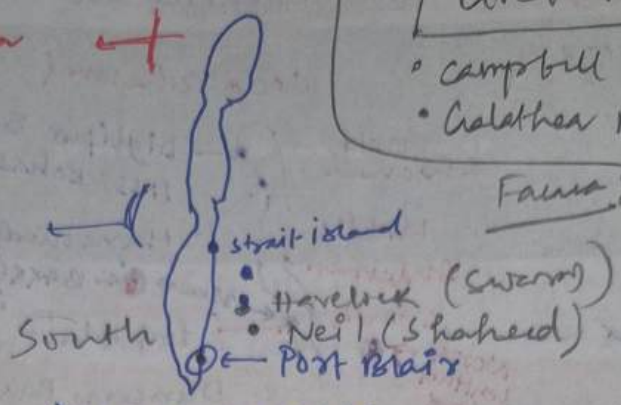 • Campbell
• Galathea
Fauna
strait island
Havelock (Swaraj)
South
• Neil (Shaheed)
Port Blair